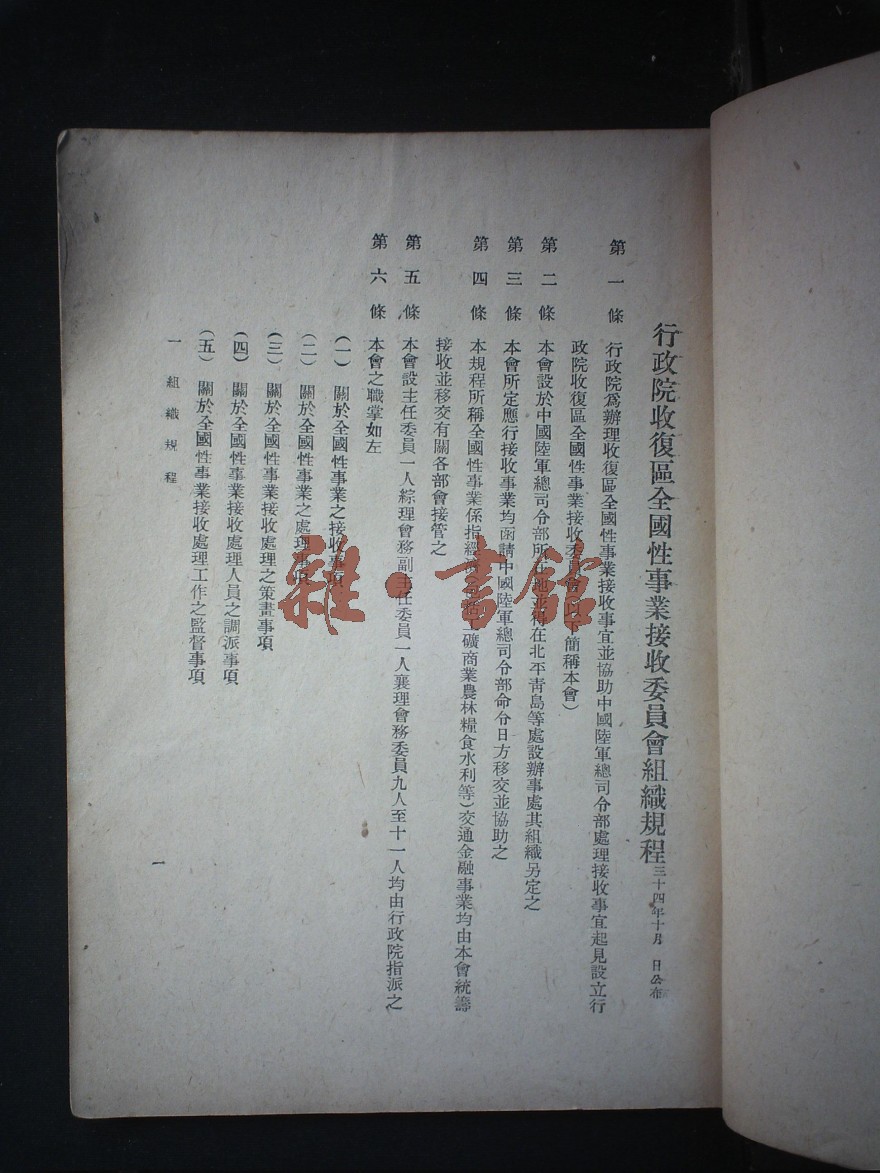 行政院收復區全國性事業接收委員會組織規程三十四年十月　日公布
第一條　行政院爲辦理收復區全國性事業接收事宜並協助中國陸軍總司令部處理接收事宜起見設立行
政院收復區全國性事業接收委員會（以下簡稱本會）
第二條　本會設於中國陸軍總司令部所在地並得在北平靑島等處設辦事處其組織另定之
第三條　本會所定應行接收事業均函請中國陸軍總司令部命令日方移交並協助之
第四條　本規程所稱全國性事業係指經濟工礦商業農林糧食水利等）交通金融事業均由本會統籌
接收並移交有關各部會接管之
第五條　本會設主任委員一人綜理會務副主任委員一人襄理會務委員九人至十一人均由行政院指派之
第六條　本會之職掌如左
（一）關於全國性事業之接收事項
（二）關於全國性事業之處理事項
（三）關於全國性事業接收處理之策畫事項
（四）關於全國性事業接收處理人員之調派事項
（五）關於全國性事業接收處理工作之監督事項
一　組織規程
一
雜·書館